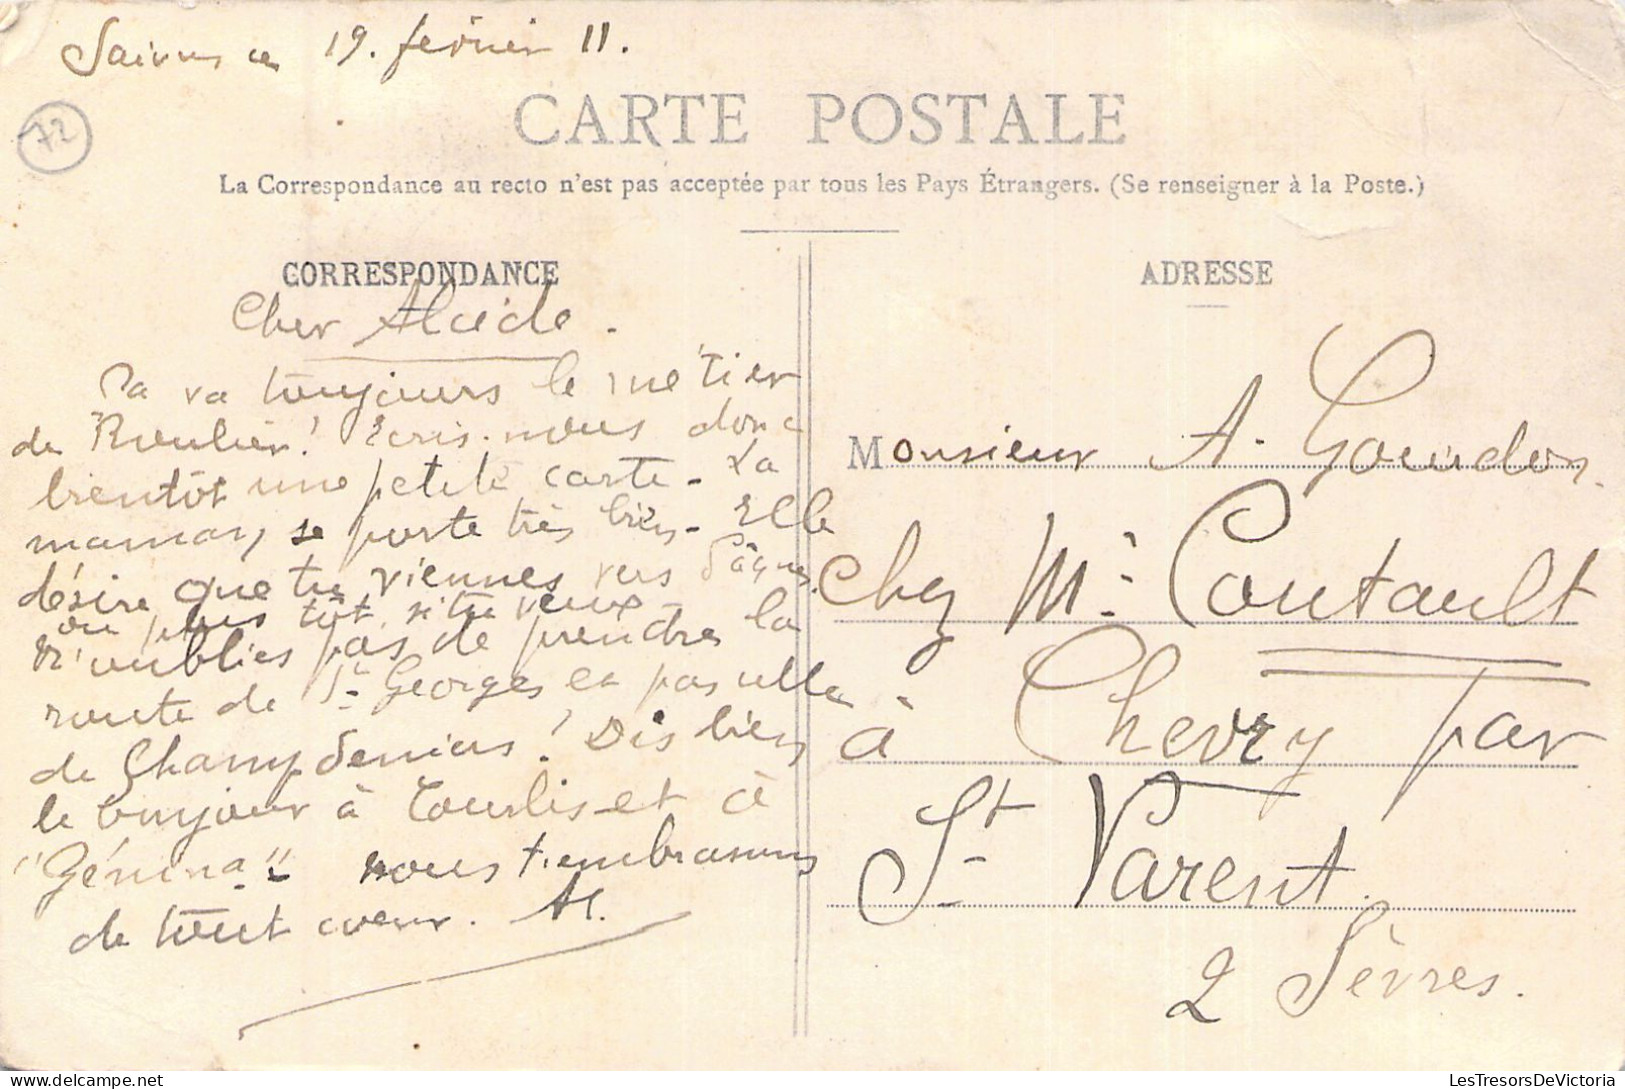 Saivres ce 19. février 11.
72
CARTE POSTALE
La Correspondance au recto n'est pas acceptée par tous les Pays Étrangers. (Se renseigner à la Poste.)
CORRESPONDANCE
Cher Alcide.
Ça va toujours le métier
de Roulier! Ecris-nous donc
bientôt une petite carte. La
maman se porte très bien. Elle
désire que tu viennes vers Pâques
ou plus tôt, si tu veux.
N'oublies pas de prendre la
route de St Georges et pas celle
de Champdeniers! Dis bien
le bonjour à Tourlis et à
"Génina" nous t'embrassons
de tout cœur. Al.
ADRESSE
Monsieur A. Goudon.
chez Mr. Coutault
à Chevry par
St Varent.
2 Sèvres.
LesTresorsDeVictoria